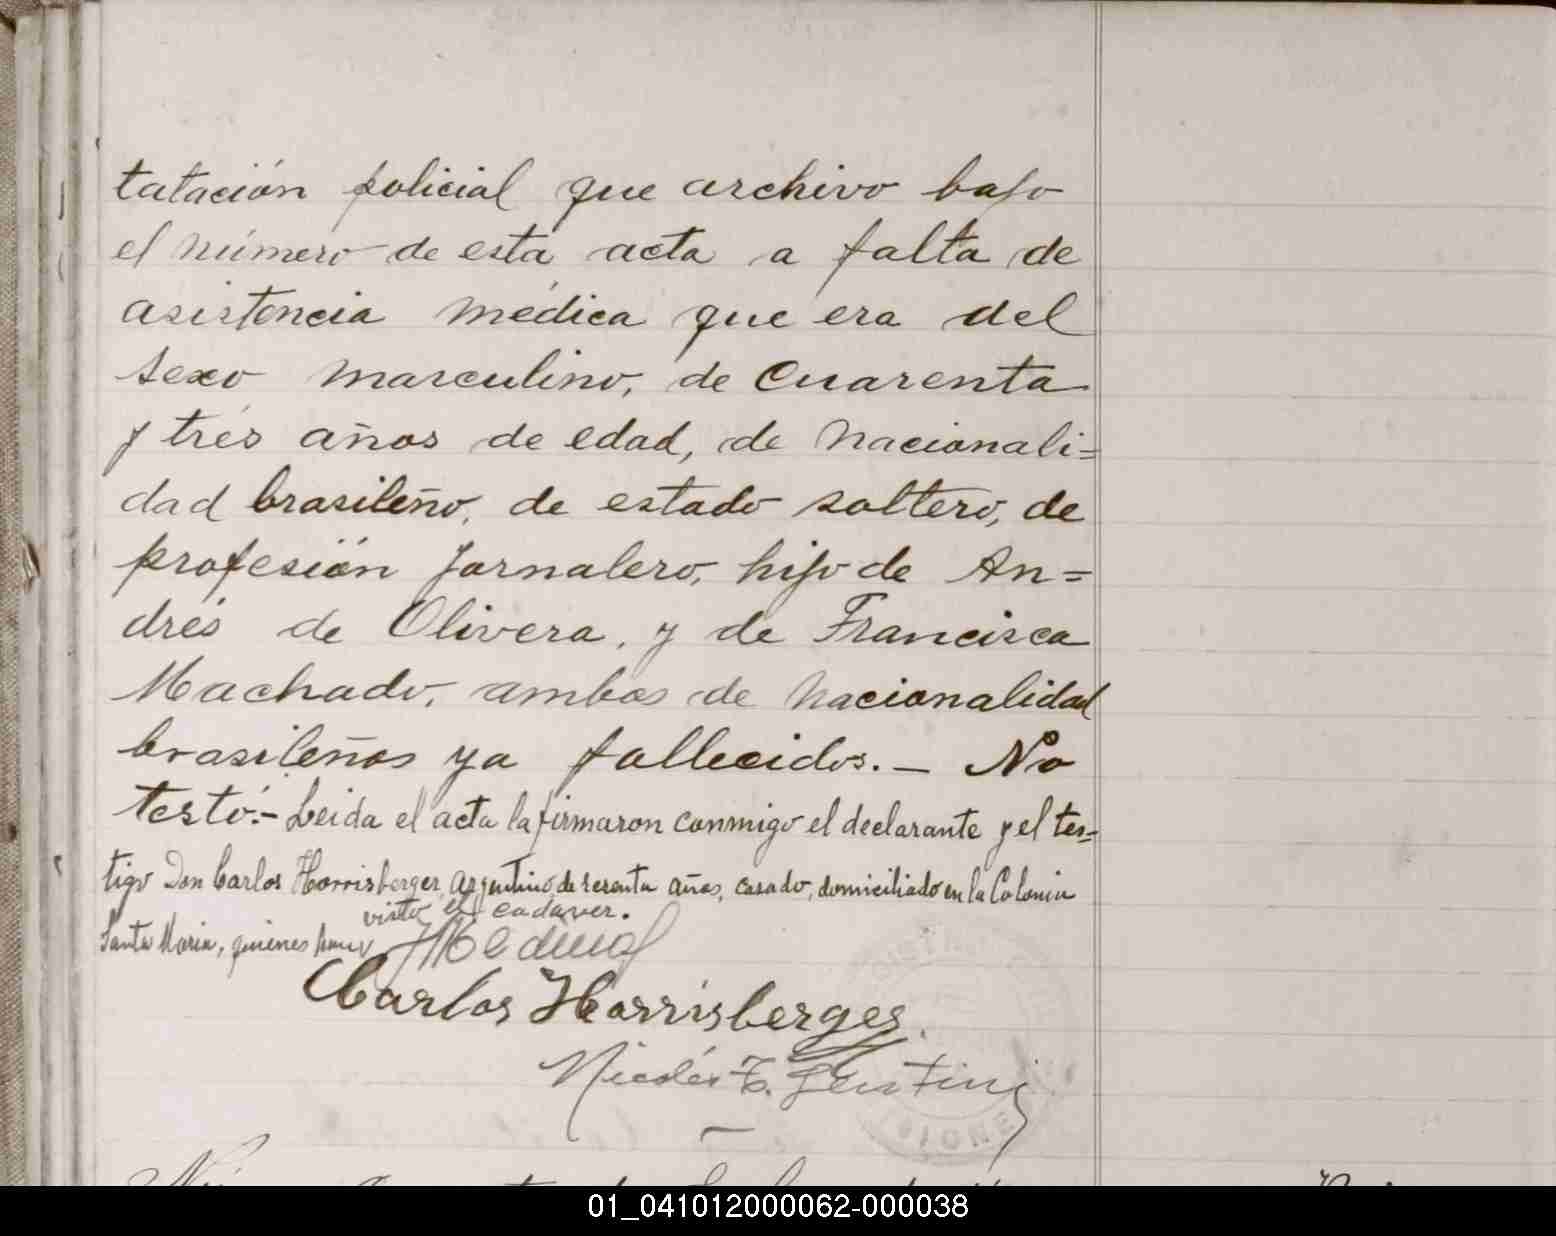 tatación policial que archivo bajo
el número de esta acta a falta de
asistencia médica que era del
sexo masculino, de cuarenta
y trés años de edad, de nacionali=
dad brasileño, de estado soltero, de
profesión jornalero, hijo de An=
drés de Olivera, y de Francisca
Machado, ambos de nacionalidad
brasileños ya fallecidos.— No
testó.- Leida el acta la firmaron conmigo el declarante y el tes=
tigo Don Carlos Horrisberger, argentino, de sesenta años, casado, domiciliado en la Colonia
visto el cadaver.
Santa Maria, quienes han
Carlos Horrisberger
Nicolás
01_041012000062-000038